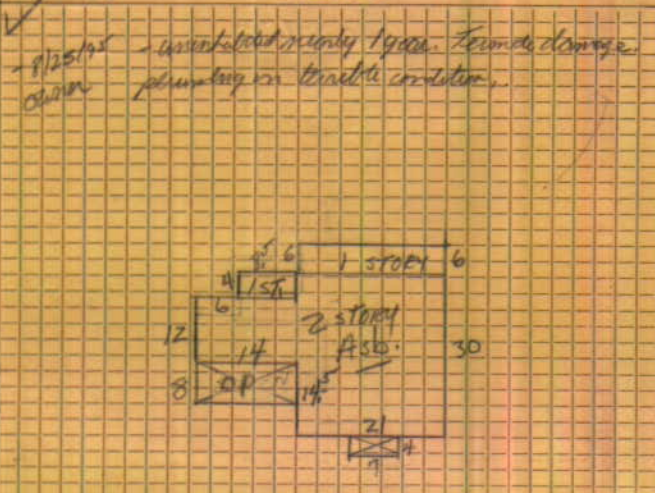 - 8/25/95 - uninhabited nearly 1 year. Termite damage.
owner plumbing in terrible condition.
6 1 STORY 6
4 1 ST.
6
2 STORY
12 Asb. 30
14
8 OP
21
4
7